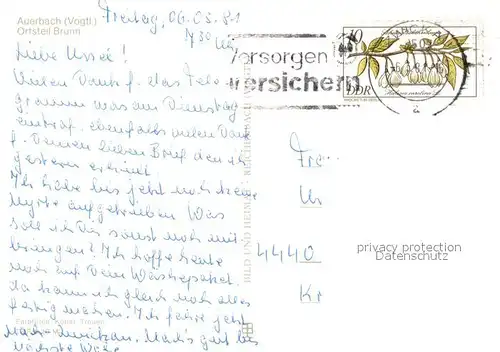 Auerbach (Vogtl.)
Ortsteil Brunn
Freitag, 06.03.81
7 30 Uhr
Liebe
Vielen Dank f. das Tele-
gramm was am Dienstag
eintraf. ebenfalls vielen Dank
f. Deinen lieben Brief den ich
gestern erhielt.
Ich habe bis jetzt noch keine
Myrte aufgetrieben Was
soll ich Dir sonst noch mit
bringen? Ich hoffe heute
noch auf Dein Wäschepaket.
da kann ich gleich noch alles
fertig machen. Ich fahre jetzt
nach Zwickau. Mach's gut bis
nächste Woche
BILD UND HEIMAT REICHENBACH
Vorsorgen
versichern
10
DDR
Fr
4440
privacy protection
Datenschutz